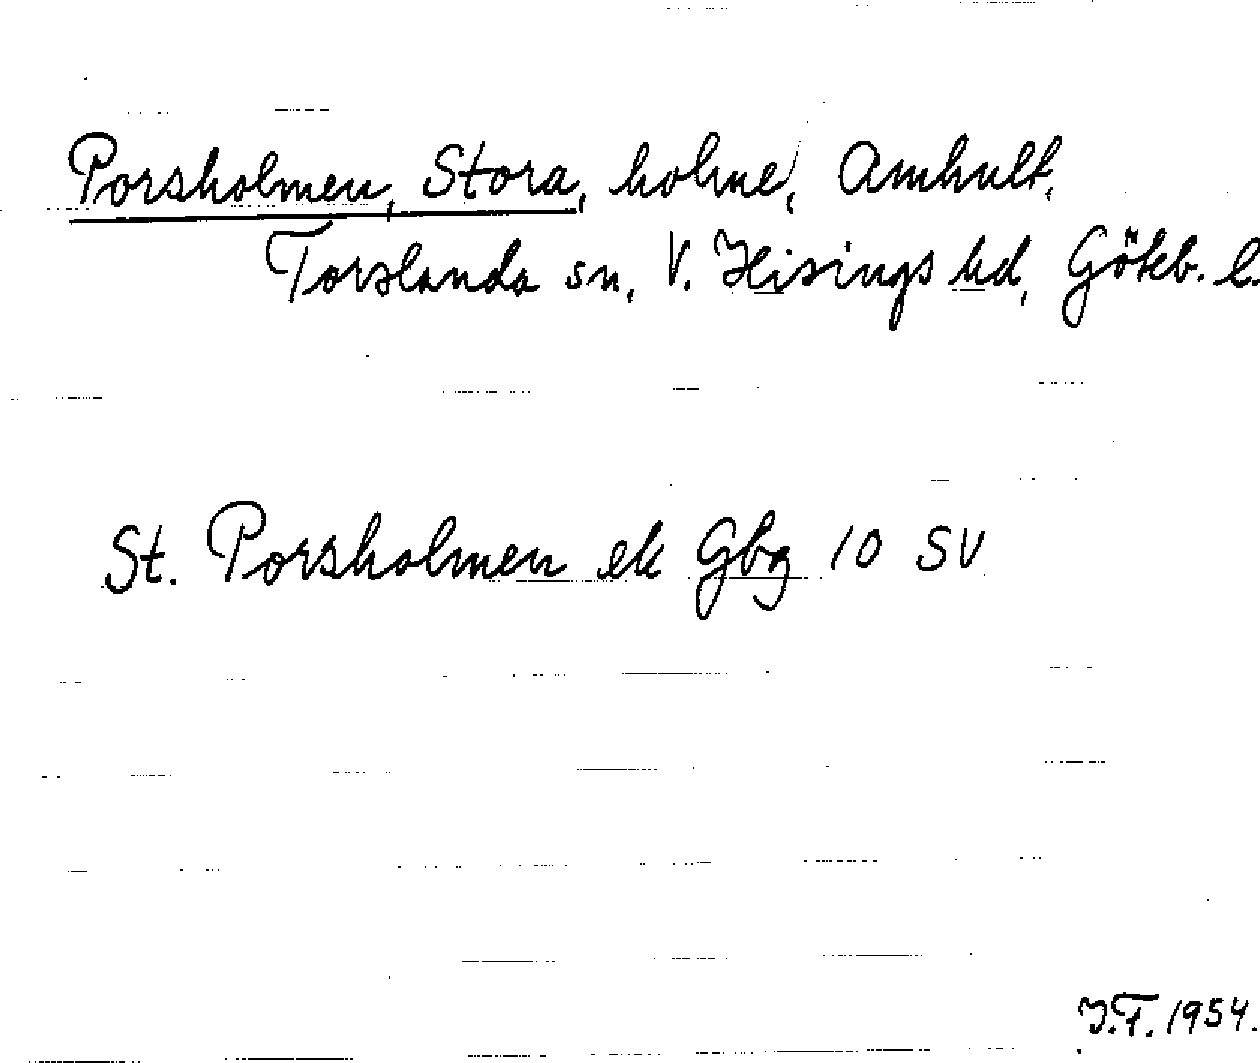 Porsholmen, Stora, holme, Amhult,
Torslanda sn, V. Hisings hd, Götkb. l.
St. Porsholmen ek Gbg 10 SV
J.F. 1954.